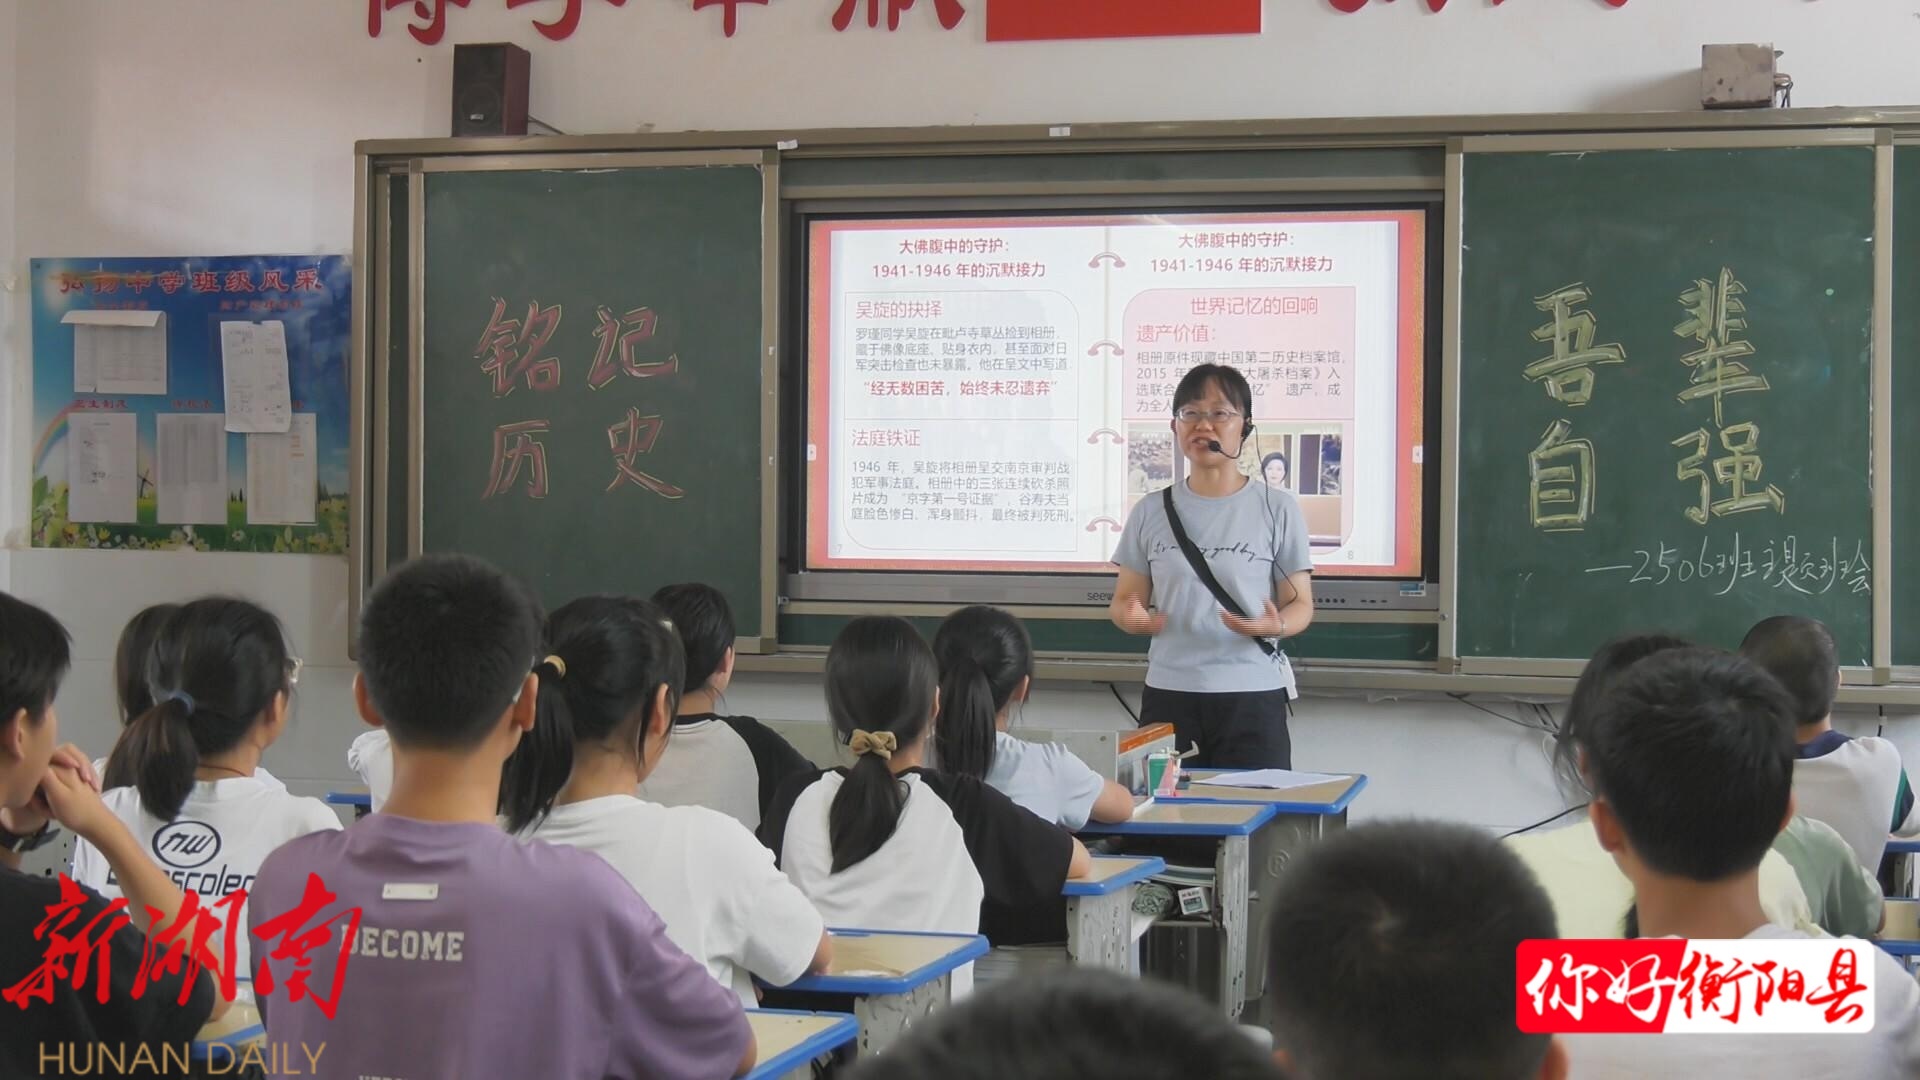 弘扬中学班级风采
铭记
历史
大佛腹中的守护：
1941-1946 年的沉默接力
吴旋的抉择
罗瑾同学吴旋在毗卢寺草丛捡到相册，
藏于佛像底座、贴身衣内，甚至面对日
军突击检查也未暴露。他在呈文中写道
“经无数困苦，始终未忍遗弃”
法庭铁证
1946 年，吴旋将相册呈交南京审判战
犯军事法庭。相册中的三张连续砍杀照
片成为 “京字第一号证据”，谷寿夫当
庭脸色惨白、浑身颤抖，最终被判死刑。
7
大佛腹中的守护：
1941-1946 年的沉默接力
世界记忆的回响
遗产价值：
相册原件现藏中国第二历史档案馆，
2015 年 大屠杀档案》入
选联合 忆” 遗产，成
为全人
8
seew
吾辈
自强
—2506班主题班会
it's a good day
NW
BECOME
新湖南
HUNAN DAILY
你好衡阳县